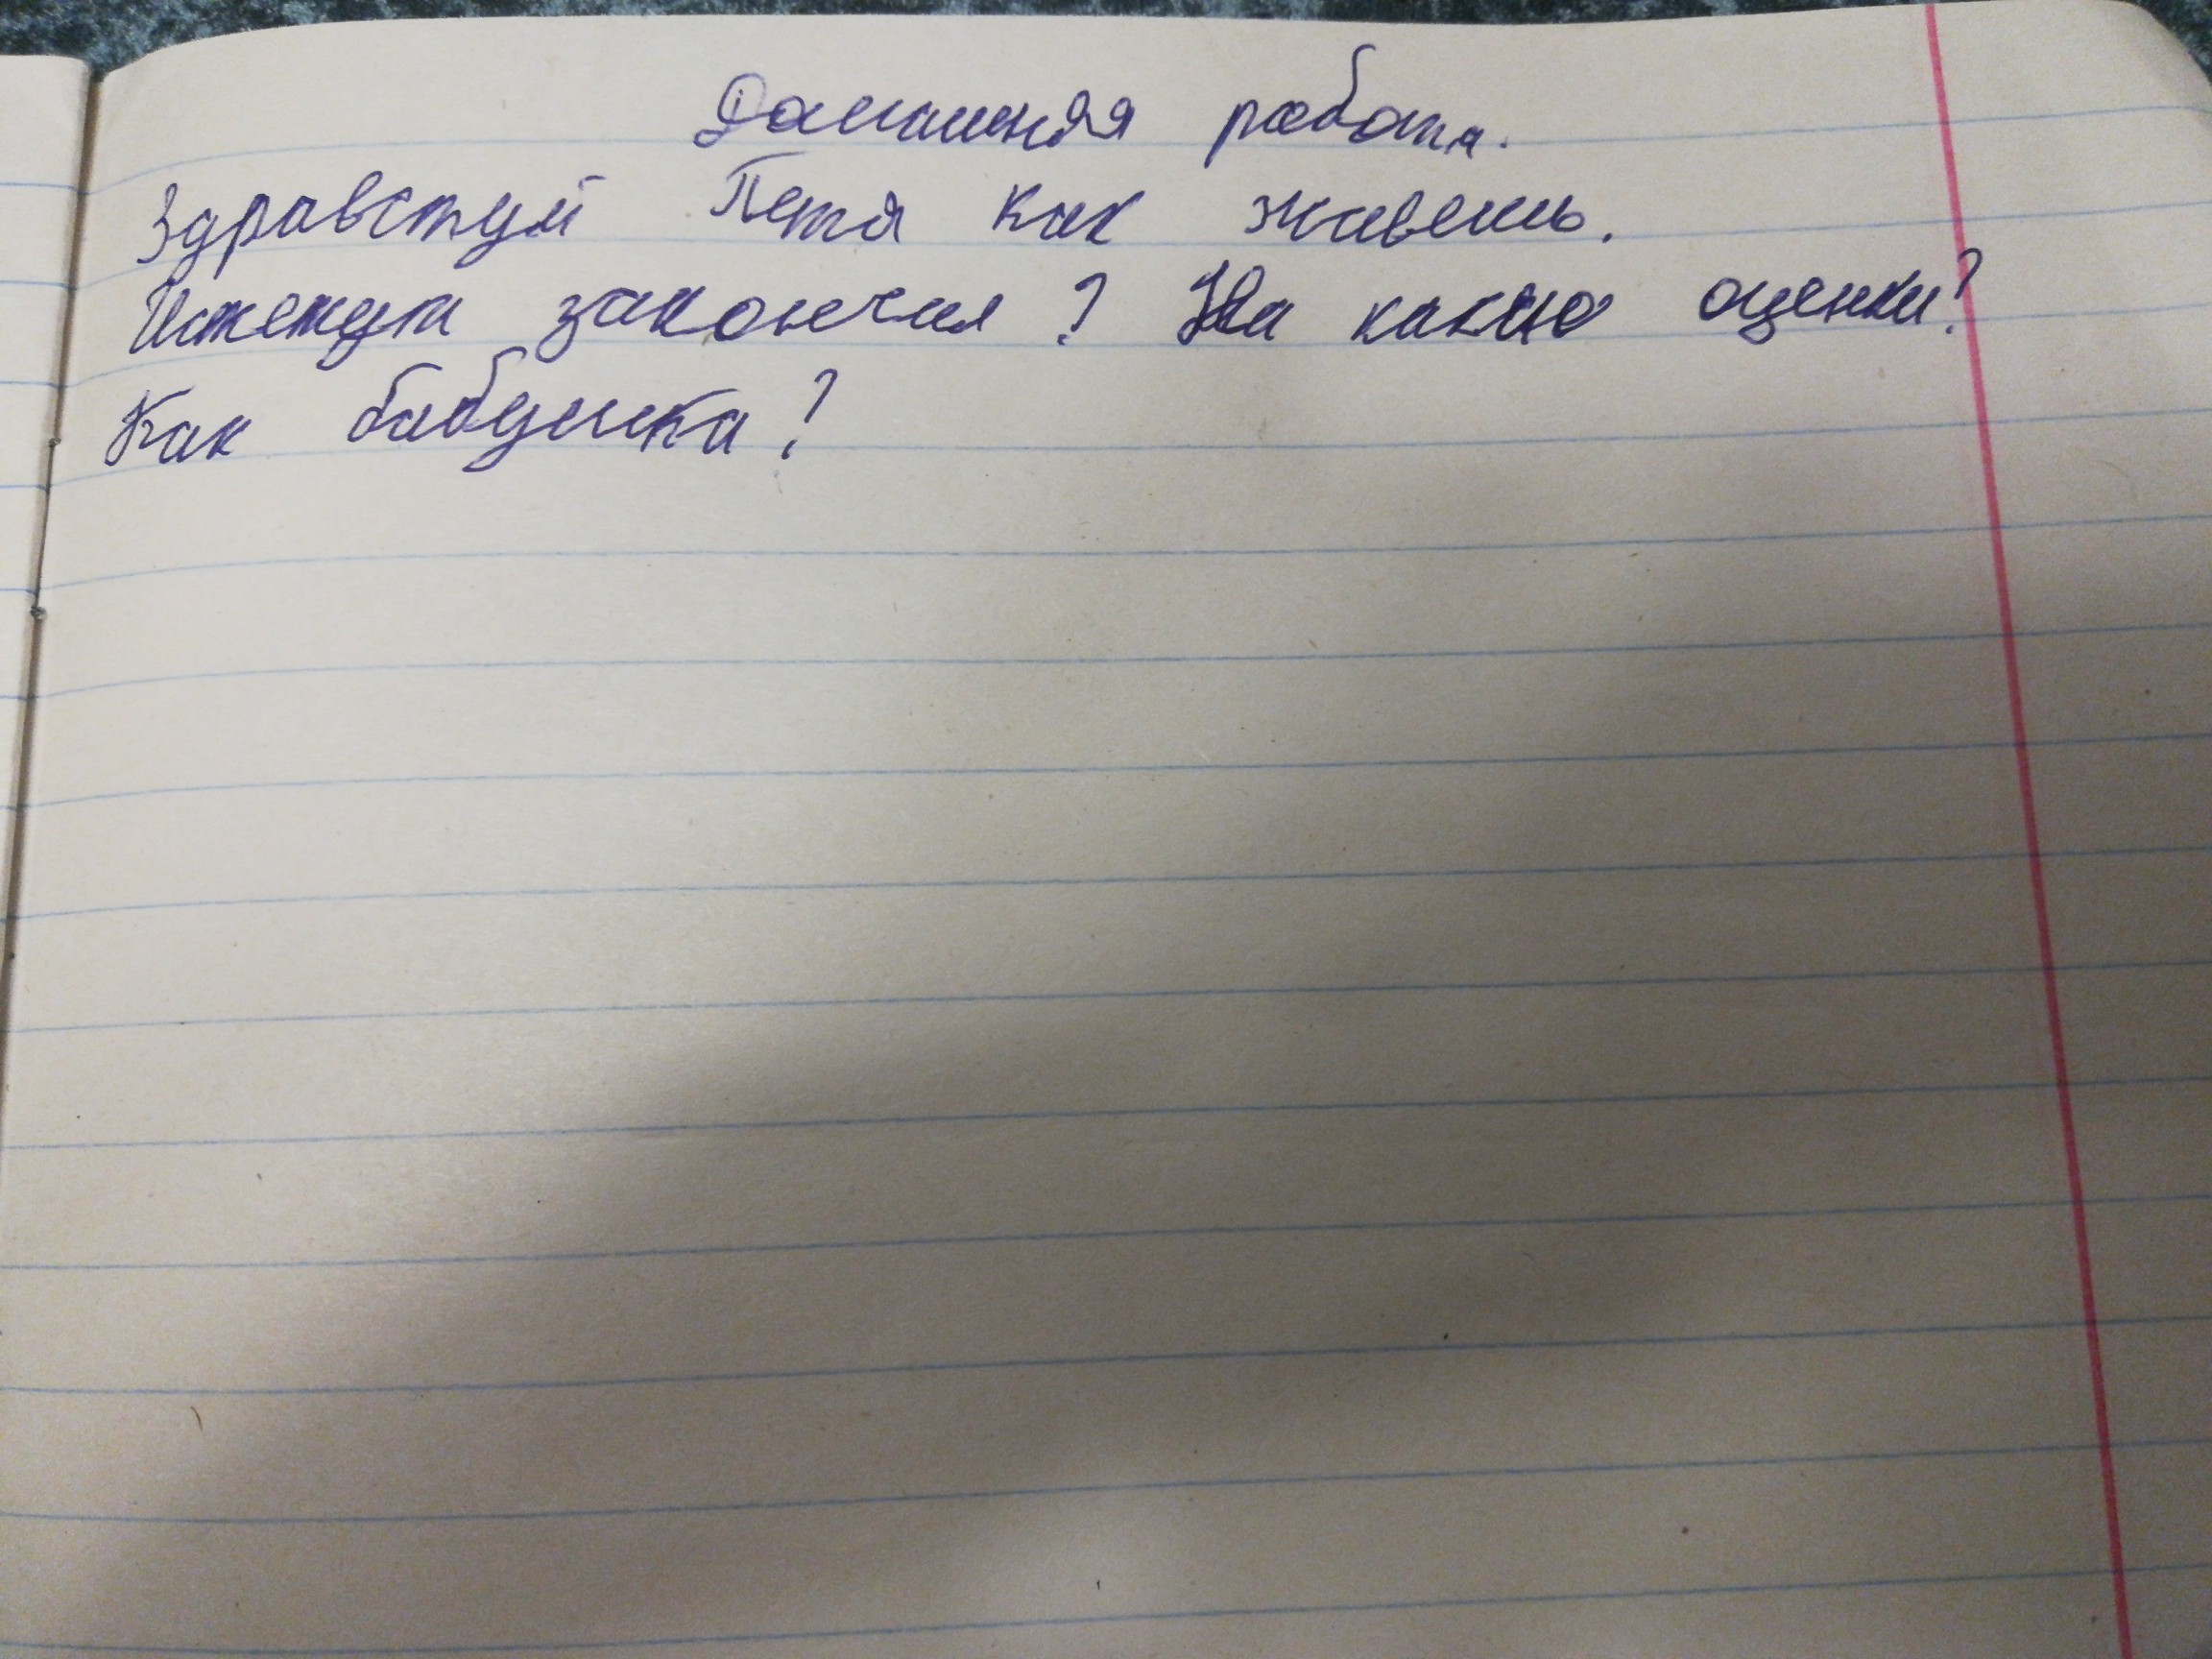 Домашняя работа.
Здравстуй Петя как живешь.
закончил? На какию оценки?
Как бабушка?